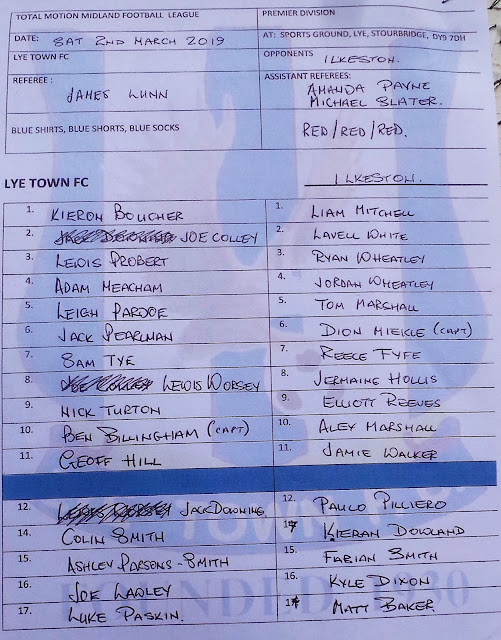 TOTAL MOTION MIDLAND FOOTBALL LEAGUE PREMIER DIVISION
DATE: SAT 2ND MARCH 2019 AT: SPORTS GROUND, LYE, STOURBRIDGE, DY9 7DH
LYE TOWN FC OPPONENTS ILKESTON.
REFEREE: JAMES LUNN ASSISTANT REFEREES: AMANDA PAYNE
MICHAEL SLATER.
BLUE SHIRTS, BLUE SHORTS, BLUE SOCKS RED/RED/RED.
LYE TOWN FC ILKESTON.
1. KIERON BOUCHER 1. LIAM MITCHELL
2. JOE COLLEY 2. LAVELL WHITE
3. LEWIS PROBERT 3. RYAN WHEATLEY
4. ADAM MEACHAM 4. JORDAN WHEATLEY
5. LEIGH PARDOE 5. TOM MARSHALL
6. JACK PEARLMAN 6. DION MEIKLE (CAPT)
7. SAM TYE 7. REECE FYFE
8. LEWIS WORSEY 8. JERMAINE HOLLIS
9. NICK TURTON 9. ELLIOTT REEVES
10. BEN BILLINGHAM (CAPT) 10. ALEX MARSHALL
11. GEOFF HILL 11. JAMIE WALKER
12. JACK DOWNING 12. PAULO PILLIERO
14. COLIN SMITH KIERAN DOWLAND
15. ASHLEY PARSONS-SMITH 15. FABIAN SMITH
16. JOE LADLEY 16. KYLE DIXON
17. LUKE PASKIN. MATT BAKER
TOWN
FOUNDED 1930